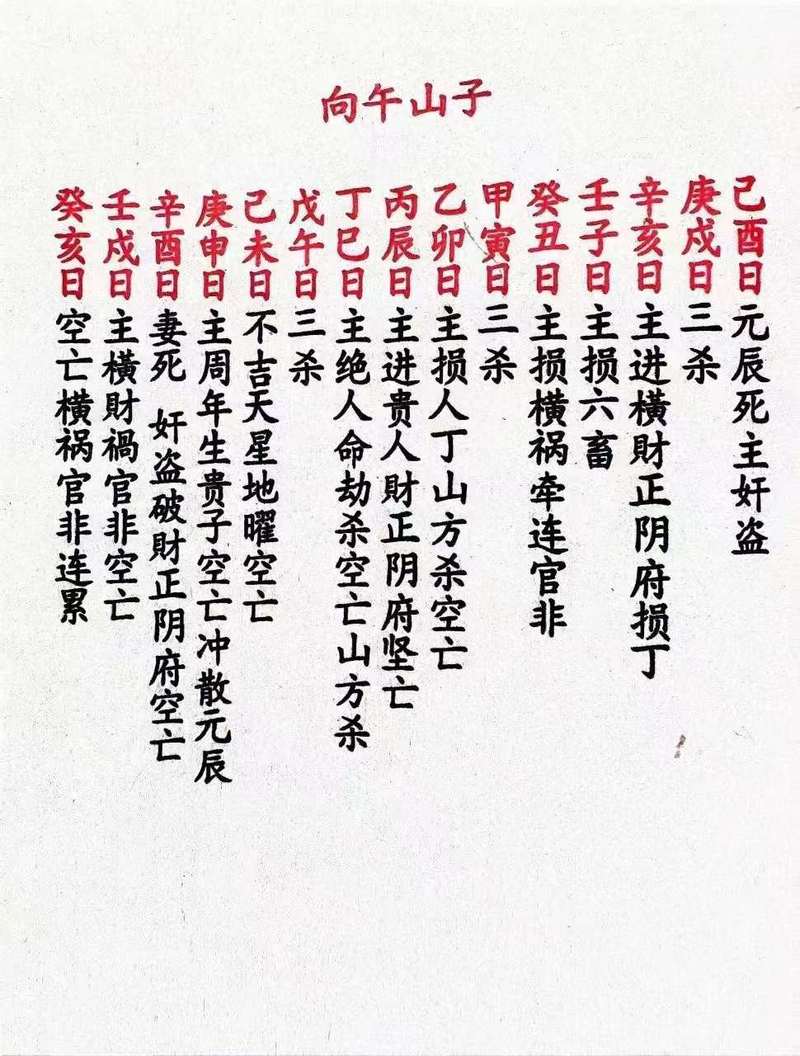 子山午向
己酉日元辰死主奸盗
庚戍日三杀
辛亥日主进横財正阴府损丁
壬子日主损六畜
癸丑日主损横祸牵连官非
甲寅日三杀
乙卯日主损人丁山方杀空亡
丙辰日主进贵人財正阴府坚亡
丁巳日主绝人命劫杀空亡山方杀
戊午日三杀
己未日不吉天星地曜空亡
庚申日主周年生贵子空亡冲散元辰
辛酉日妻死 奸盗破財正阴府空亡
壬戍日主横財禍官非空亡
癸亥日空亡横祸官非连累